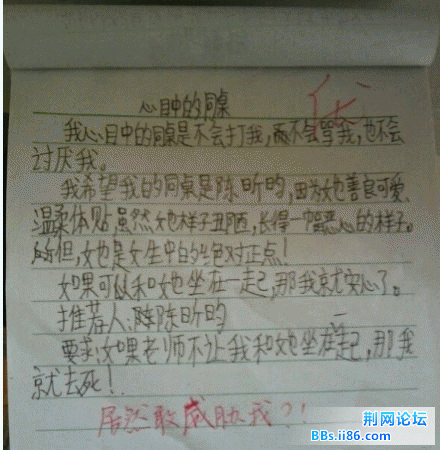 心目中的同桌
优
我心目中的同桌是不会打我,不会骂我,也不会
讨厌我。
我希望我的同桌是陈昕昀,因为她善良可爱、
温柔体贴,虽然她样子丑陋,长得一幅恶心的样子。
但,她也是女生中的绝对正点!
如果可以和她坐在一起,那我就安心了。
推荐人:陈昕昀
要求:如果老师不让我和她坐在一起,那我
就去死!
居然敢威胁我?!
荆网论坛
BBs.ii86.com